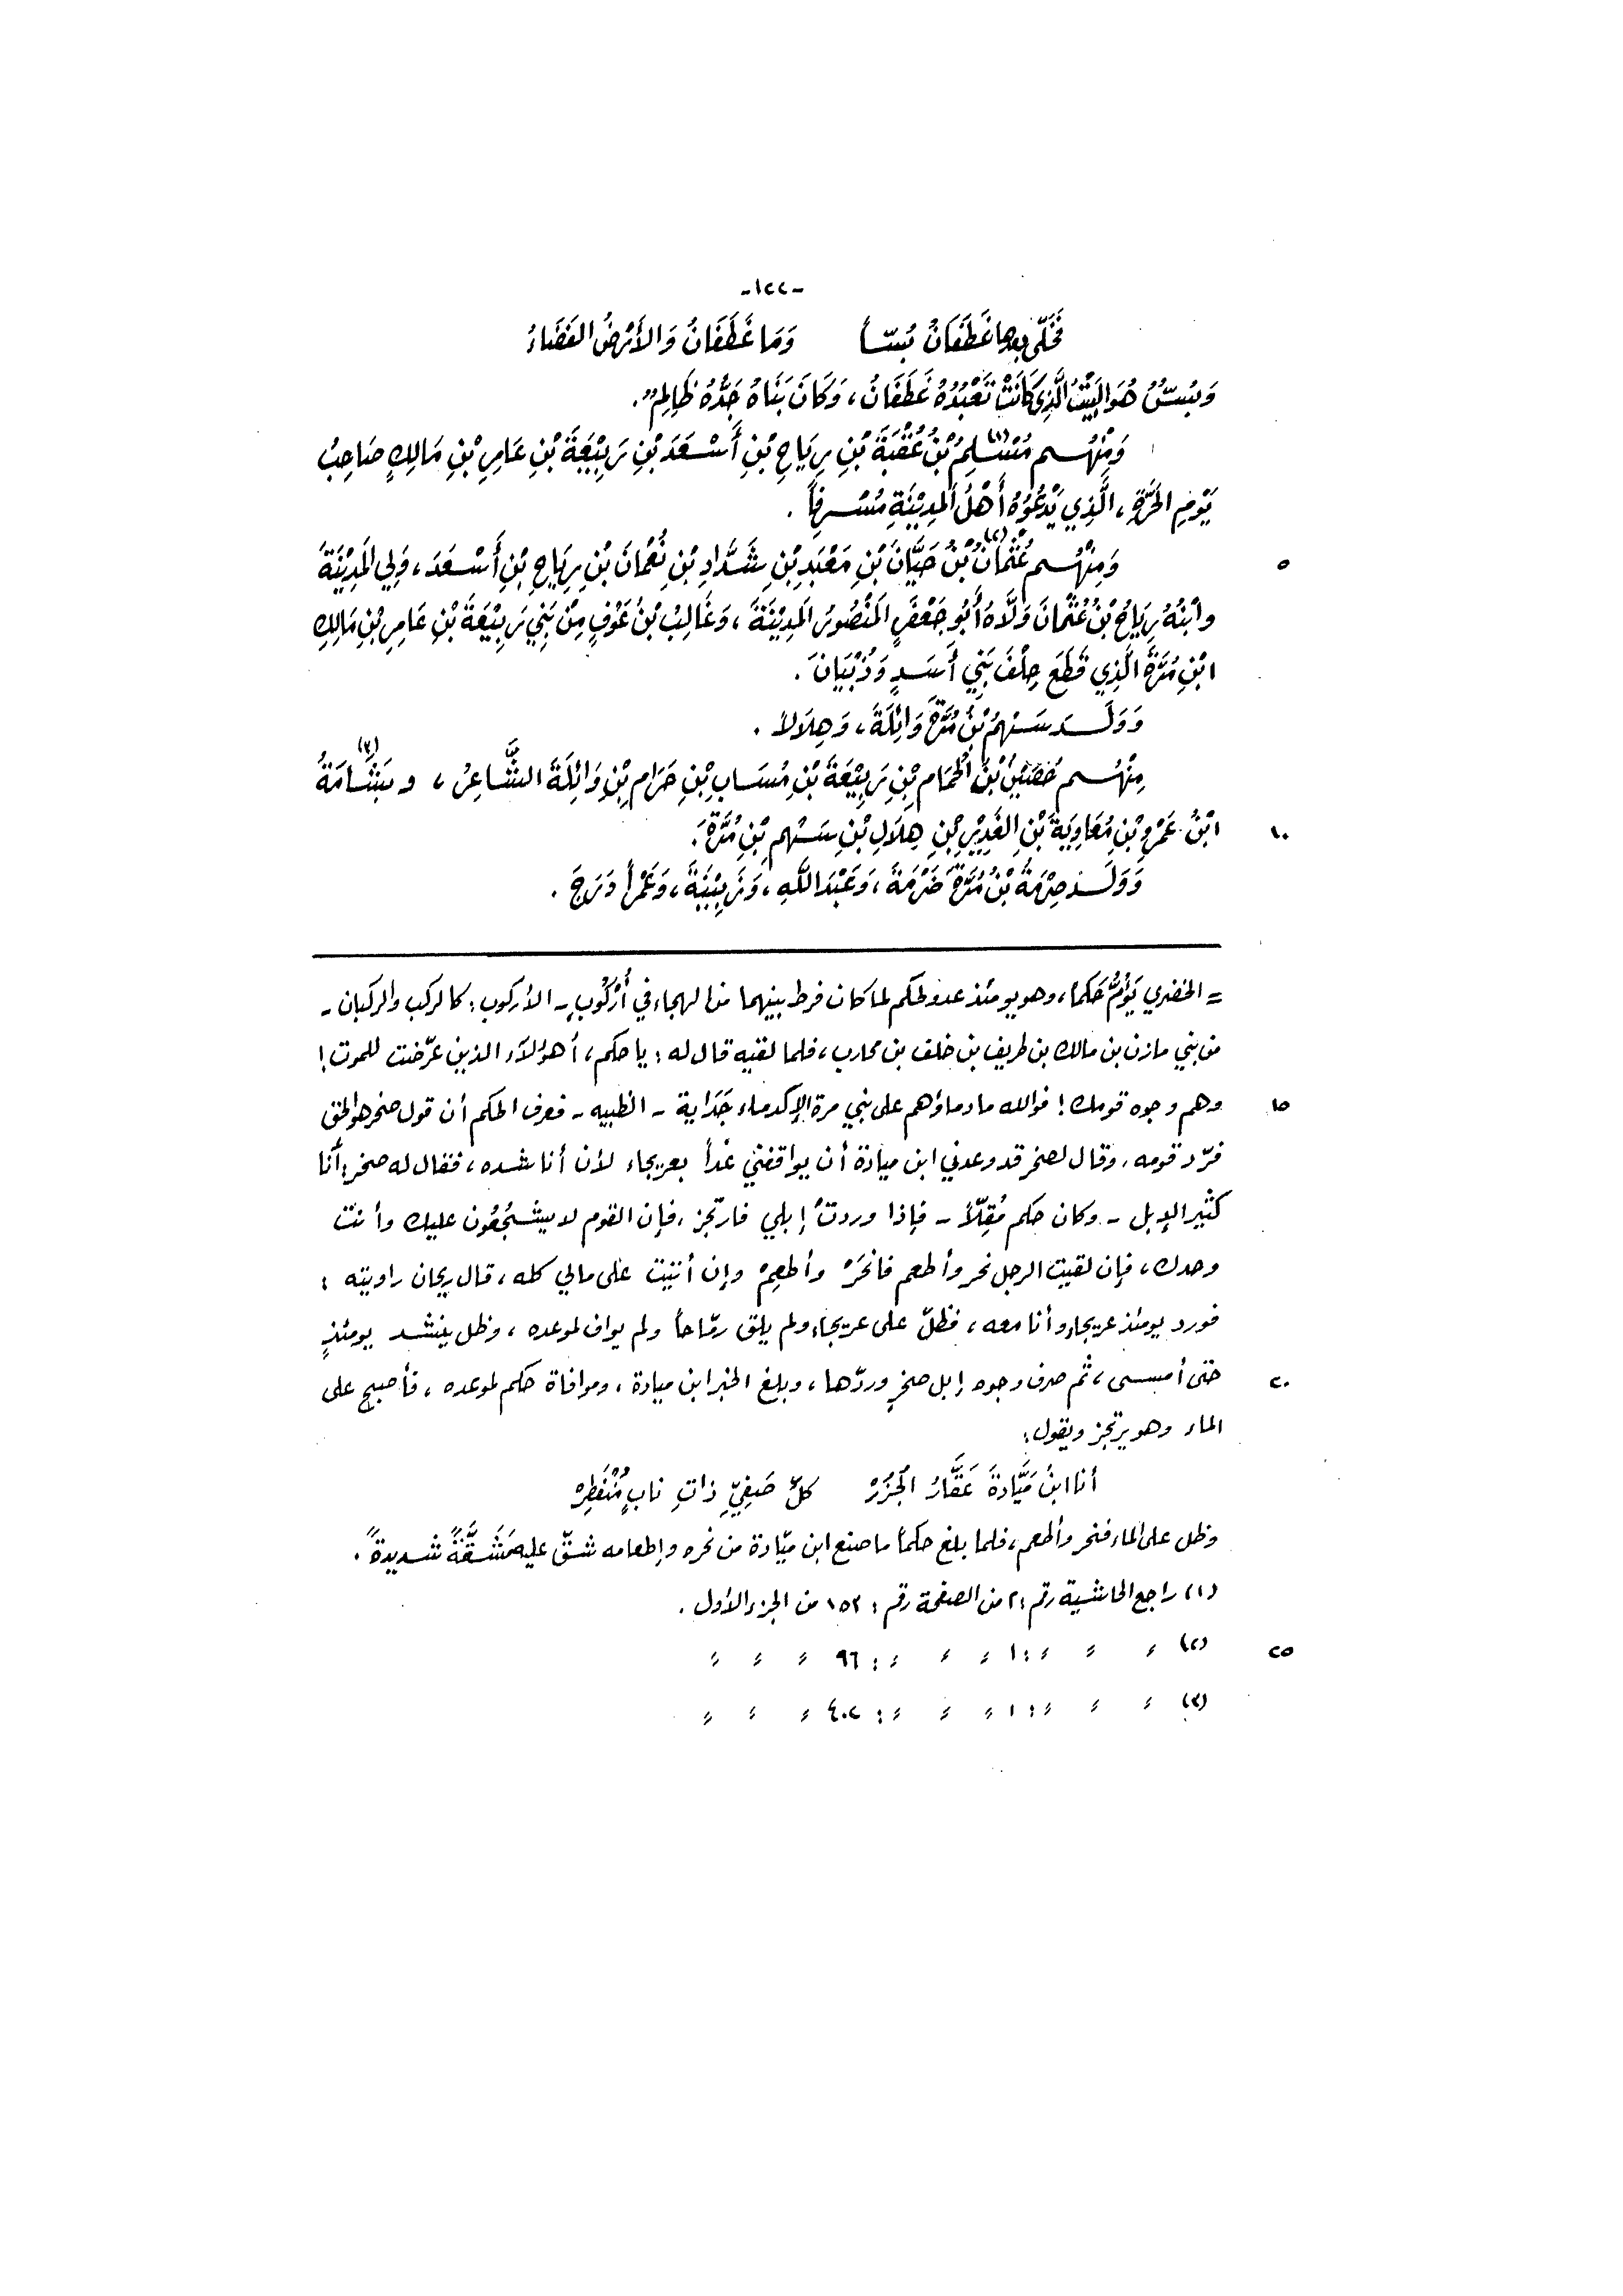 -١٢٢-
فَخَلَّى بعدها غَطَفَانُ بُسّاً وَمَا غَطَفَانُ وَالأَرْضُ الفَضَاءُ
وَبُسٌّ هُوَ البَيْتُ الَّذِي كَانَتْ تَعْبُدُهُ غَطَفَانُ، وَكَانَ بَنَاهُ جَدُّهُ ظَالِمٌ.
وَمِنْهُم مُسْلِمُ(١) بْنُ عُقْبَةَ بْنِ رِيَاحِ بْنِ أَسْعَدَ بْنِ رَبِيْعَةَ بْنِ عَامِرِ بْنِ مَالِكٍ صَاحِبُ
يَوْمِ الحَرَّةِ، الَّذِي يَدْعُوْهُ أَهْلُ المَدِيْنَةِ مُسْرِفاً.
٥ وَمِنْهُم عُثْمَانُ(٢) بْنُ حَيَّانَ بْنِ مَعْبَدِ بْنِ شَدَّادِ بْنِ نُعْمَانَ بْنِ رِيَاحِ بْنِ أَسْعَدَ، وَلِي المَدِيْنَةَ
وابْنُهُ رِيَاحُ بْنُ عُثْمَانَ وَلَّاهُ أَبُو جَعْفَرٍ المَنْصُورُ المَدِيْنَةَ، وَغَالِبُ بْنُ عَوْفٍ مِنْ بَنِي رَبِيْعَةَ بْنِ عَامِرِ بْنِ مَالِكِ
ابْنِ مُرَّةَ الَّذِي قَطَعَ حِلْفَ بَنِي أَسَدٍ وَذُبْيَانَ.
وَوَلَدَ سَهْمُ بْنُ مُرَّةَ وَائِلَةَ، وَهِلَالاً.
مِنْهُم حُصَيْنُ بْنُ الحُمَامِ بْنِ رَبِيْعَةَ بْنِ مُسَابِ بْنِ حَرَامِ بْنِ وَائِلَةَ الشَّاعِرُ، وبَشَامَةُ(٣)
١٠ ابْنُ عَمْرِو بْنِ مُعَاوِيَةَ بْنِ الغَدِيْرِ بْنِ هِلَالِ بْنِ سَهْمِ بْنِ مُرَّةَ.
وَوَلَدَ صِرْمَةُ بْنُ مُرَّةَ ضَرْمَةَ، وَعَبْدَ اللَّهِ، وَزَبِيْنَةَ، وَعَمْراً دَرَجَ.
= الخضري يَؤُمُّ حَكماً، وهو يومئذ عدو لحكم لما كان فرط بينهما من الهجاء في أُرْكُوبٍ - الأركوب: كالركب والركبان -
من بني مازن بن مالك بن طريف بن خلف بن محارب، فلما لقيه قال له: يا حكم، أهؤلاء الذين عرّضت للموت!
١٥ وهم وجوه قومك! فوالله ما دماؤهم على بني مرة إلا كدماء جَدَاية - الظبيه - فعرف الحكم أن قول صخر هو الحق
فردّ قومه، وقال لصخر قد وعدني ابن ميادة أن يواقفني غداً بعريجاء لأن أناشده، فقال له صخر: أنا
كثير الإبل - وكان حكم مُقِلّاً - فإذا وردتْ إبلي فارتجز، فإن القوم لا يشجُعُون عليك وأنت
وحدك، فإن لقيت الرجل نحر وأطعم فانحَرْ وأطعِمْ وإن أتيت على مالي كله، قال ريحان راويته:
فورد يومئذ عريجاء وأنا معه، فظلّ على عريجاء ولم يلق رمّاحاً ولم يواف لموعده، وظل ينشد يومئذٍ
٢٠ حتى أمسى، ثم صرف وجوه إبل صخرٍ وردّها، وبلغ الخبر ابن ميادة، وموافاة حكم لموعده، فأصبح على
الماء وهو يرتجز ويقول:
أنا ابنُ مَيَّادةَ عَقَّارُ الجُزُرْ كلِّ صَفِيٍّ ذاتِ نابٍ مُنْفَطِرْ
وظل على الماء فنحر وأطعم، فلما بلغ حكماً ما صنع ابن ميّادة من نحره وإطعامه شقّ عليه مَشَقَّةً شديدةً.
(١) راجع الحاشية رقم: ٢ من الصفحة رقم: ١٥٣ من الجزء الأول.
٢٥ (٢) ״ ״ ״: ١ ״ ״ ״: ٩٦ ״ ״ ״
(٣) ״ ״ ״: ١ ״ ״ ״: ٤٠٢ ״ ״ ״